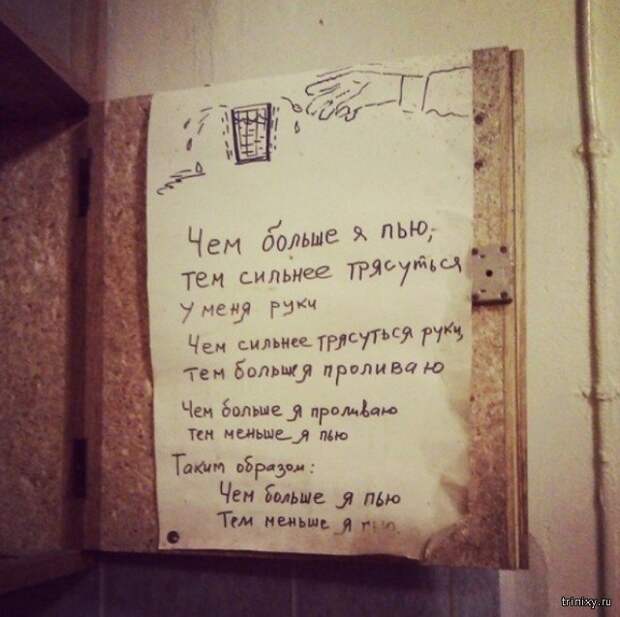 Чем больше я пью,
тем сильнее трясуться
у меня руки
Чем сильнее трясуться руки,
тем больше я проливаю
Чем больше я проливаю
тем меньше я пью
Таким образом:
Чем больше я пью
Тем меньше я пью.
trinixy.ru